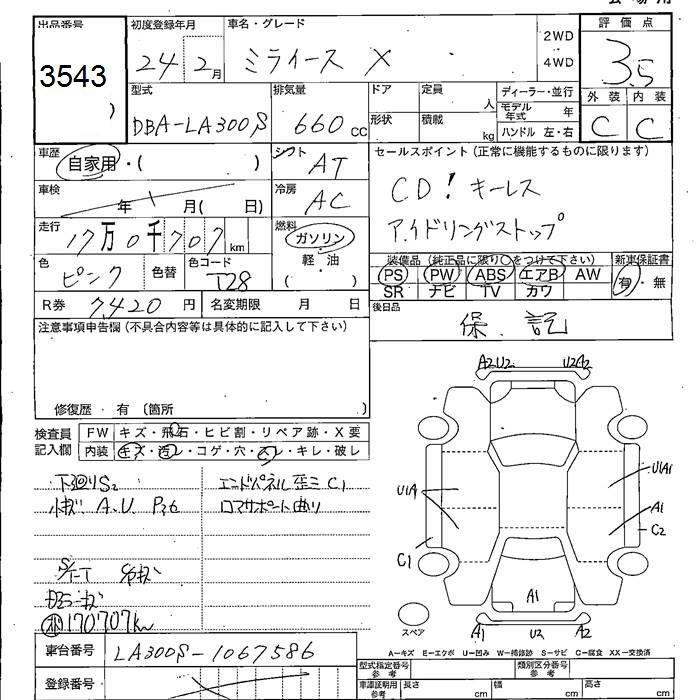 出品番号
3543
初度登録年月
24 2月
車名・グレード
ミライース X
2WD
4WD
評価点
3.5
外装 内装
C C
型式
DBA-LA300S
排気量
660cc
ドア
形状
定員 人
積載 kg
ディーラー・並行
モデル年式 年
ハンドル 左・右
車歴
自家用・( )
シフト
AT
車検
年 月( 日)
冷房
AC
走行
17万0千707km
燃料
ガソリン
軽・油
( )
色
ピンク
色替
色コード
T28
R券 7,420円
名変期限 月 日
セールスポイント(正常に機能するものに限ります)
CD! キーレス
アイドリングストップ
装備品(純正品に限り○をつけて下さい)
PS PW ABS エアB AW
SR ナビ TV カワ
新車保証書
有・無
後日品
保、記
注意事項申告欄(不具合内容等は具体的に記入して下さい)
修復歴・有(箇所 )
検査員
記入欄
FW キズ・飛石・ヒビ割・リペア跡・X要
内装 キズ・汚レ・コゲ・穴・スレ・キレ・破レ
下廻りS2
エンドパネル歪ミ C1
小キズ A.U P26
コアサポート曲り
170707km
A2U2 U2A2
U1A U1A1
A1
C2
C1
A1
スペア
A1 U2 A2
A-キズ E-エクボ U-凹み W-補修跡 S-サビ C-腐食 XX-交換済
車台番号
LA300S-1067586
登録番号
型式指定番号
参考
類別区分番号
参考
車庫証明用
参考
長さ cm
幅 cm
高さ cm